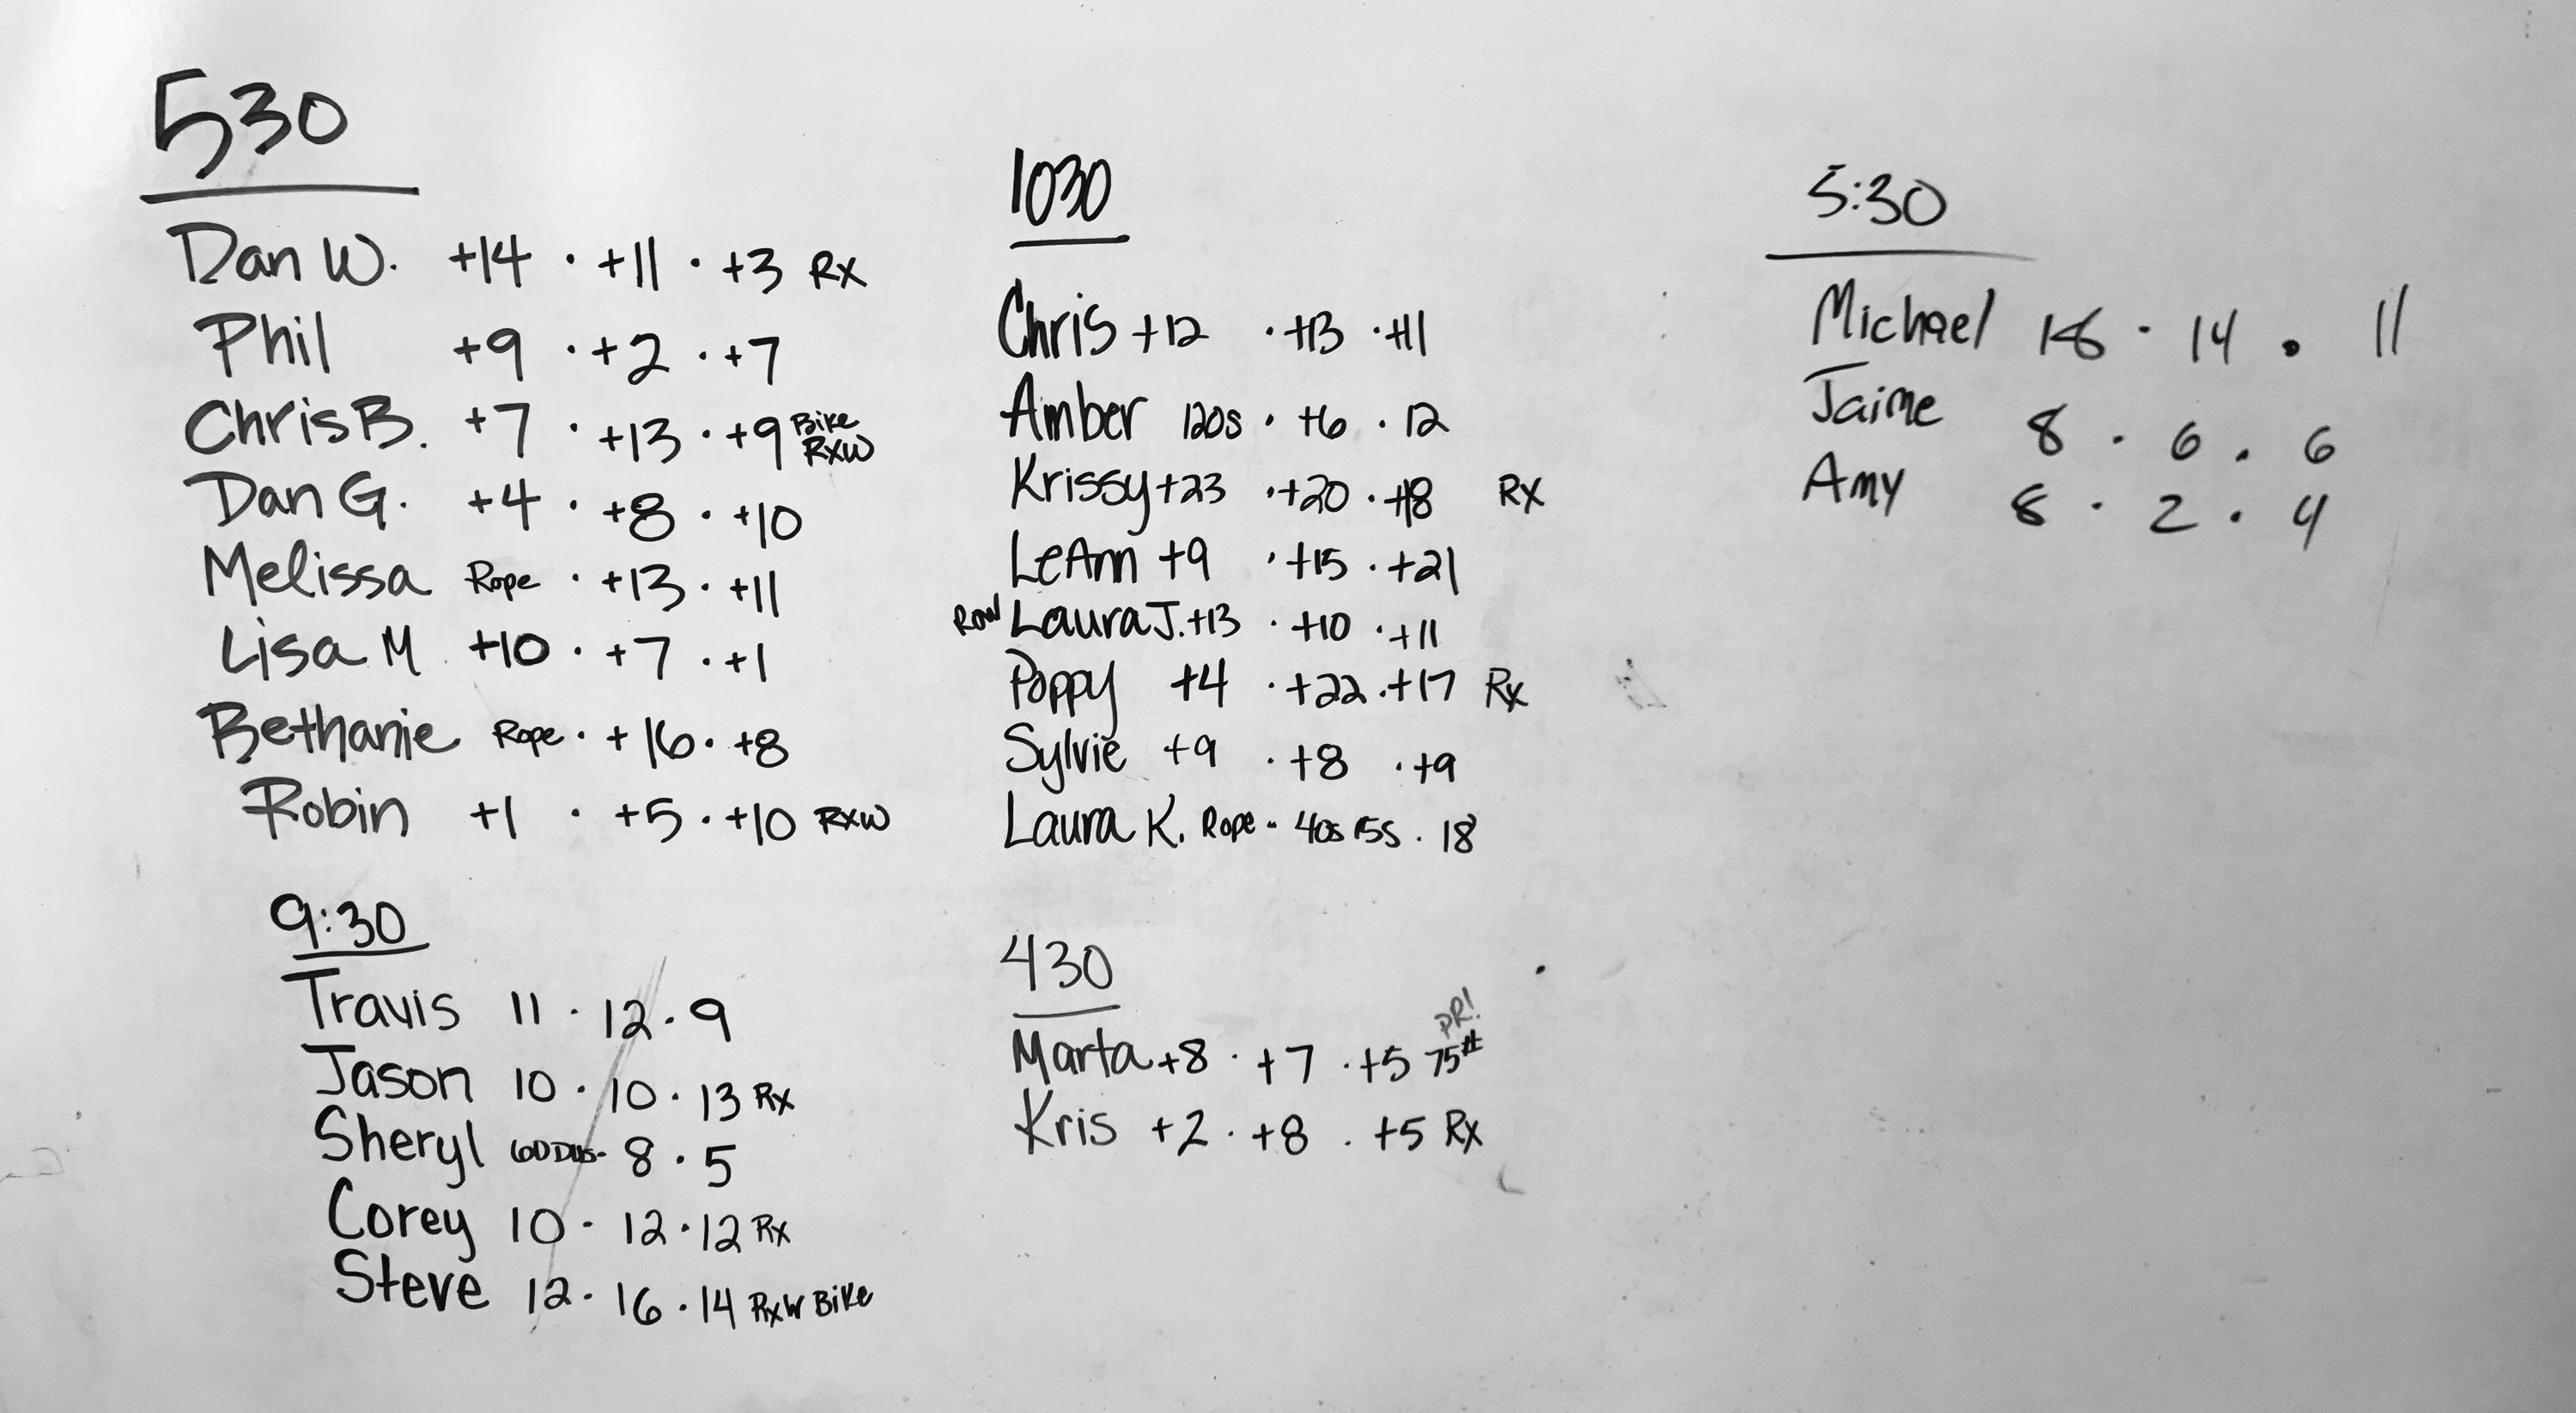 530
Dan W. +14 · +11 · +3 RX
Phil +9 · +2 · +7
Chris B. +7 · +13 · +9 Bike RXW
Dan G. +4 · +8 · +10
Melissa Rope · +13 · +11
Lisa M +10 · +7 · +1
Bethanie Rope · +16 · +8
Robin +1 · +5 · +10 RXW
9:30
Travis 11 · 12 · 9
Jason 10 · 10 · 13 Rx
Sheryl 60 DUs - 8 · 5
Corey 10 - 12 · 12 Rx
Steve 12 · 16 · 14 RxW Bike
1030
Chris +12 · +13 · +11
Amber 120s · +6 · 12
Krissy +23 · +20 · +18 RX
LeAnn +9 · +15 · +21
Row Laura J. +13 · +10 · +11
Poppy +4 · +22 · +17 Rx
Sylvie +9 · +8 · +9
Laura K. Rope - 40s 15s · 18
430
Marta +8 · +7 · +5 75# PR!
Kris +2 · +8 · +5 Rx
5:30
Michael · 14 · 11
Jaime 8 · 6 · 6
Amy 8 · 2 · 4